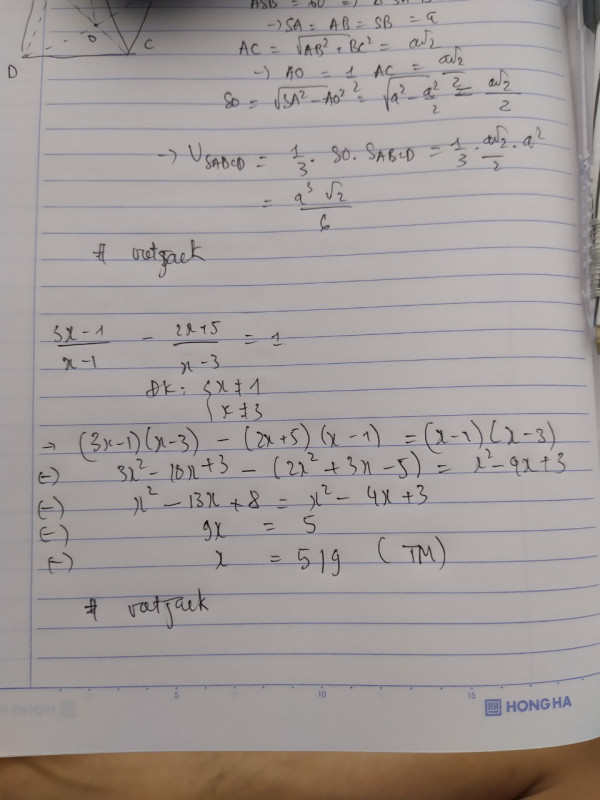 ASB = 60° =>
-> SA = AB = SB = a
AC = √(AB² + BC²) = a√2
D
O
C
-> AO = 1/2 AC = a√2/2
SO = √(SA² - AO²) = √(a² - a²/2) = a√2/2
-> V_SABCD = 1/3 . SO . S_ABCD = 1/3 . a√2/2 . a²
= a³√2/6
(3x-1)/(x-1) - (2x+5)/(x-3) = 1
ĐK: { x ≠ 1
{ x ≠ 3
-> (3x-1)(x-3) - (2x+5)(x-1) = (x-1)(x-3)
(=) 3x² - 10x + 3 - (2x² + 3x - 5) = x² - 4x + 3
(=) x² - 13x + 8 = x² - 4x + 3
(=) 9x = 5
(=) x = 5/9 (TM)
5 10 15
HONG HA